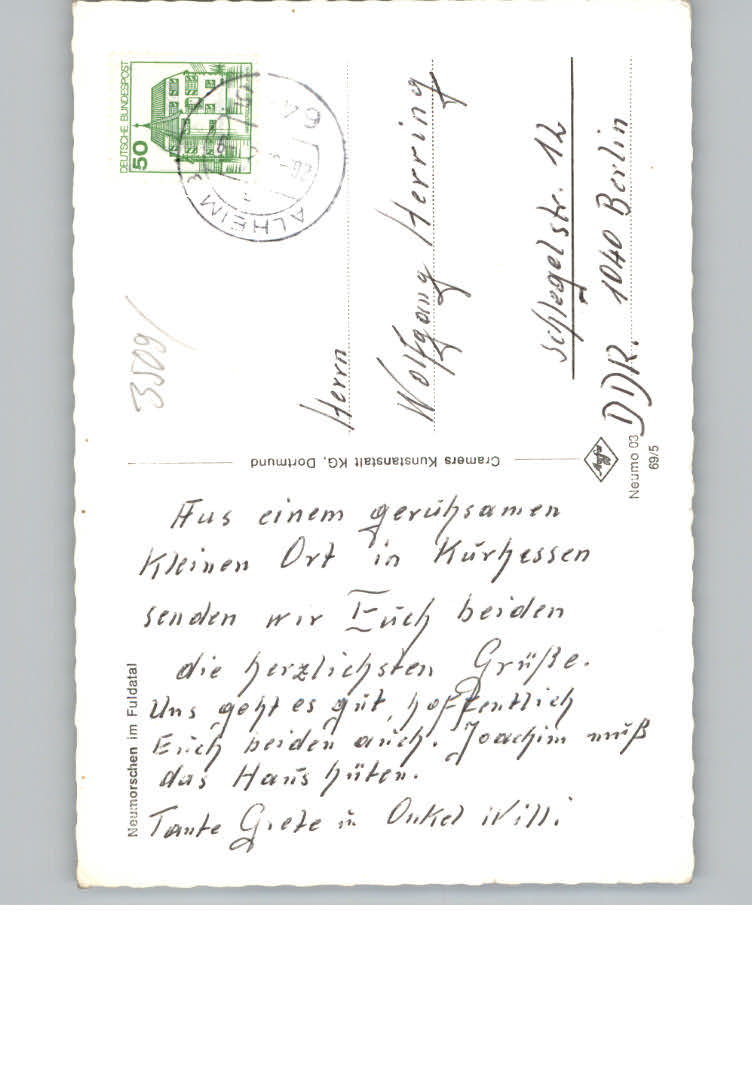 Neumorschen im Fuldatal
Aus einem geruhsamen
kleinen Ort in Kurhessen
senden wir Euch beiden
die herzlichsten Grüße.
Uns geht es gut, hoffentlich
Euch beiden auch. Joachim muß
das Haus hüten.
Tante Grete u Onkel Willi
Cramers Kunstanstalt KG, Dortmund
Neumo 03
69/5
3509/
DEUTSCHE BUNDESPOST
50
ALHEIM
Herrn
Wolfgang Herring
Schlegelstr. 12
DDR. 1040 Berlin